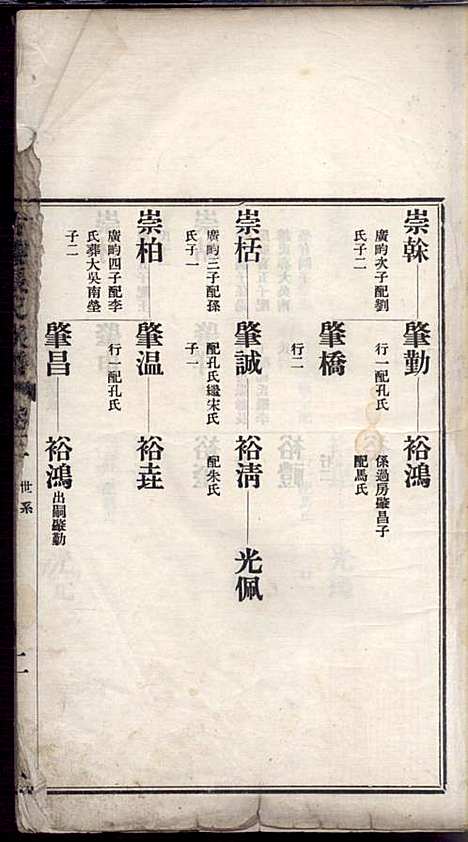 崇榦
廣畇次子配劉
氏子二
肇勤
行一配孔氏
裕鴻
係過房肇昌子
配馬氏
肇橋
行二
崇栝
廣畇三子配孫
氏子一
肇誠
配孔氏繼宋氏
子一
裕淸
配朱氏
光佩
崇柏
廣畇四子配李
氏葬大吳南塋
子二
肇温
行一配孔氏
裕垚
肇昌
裕鴻
出嗣肇勤
世系